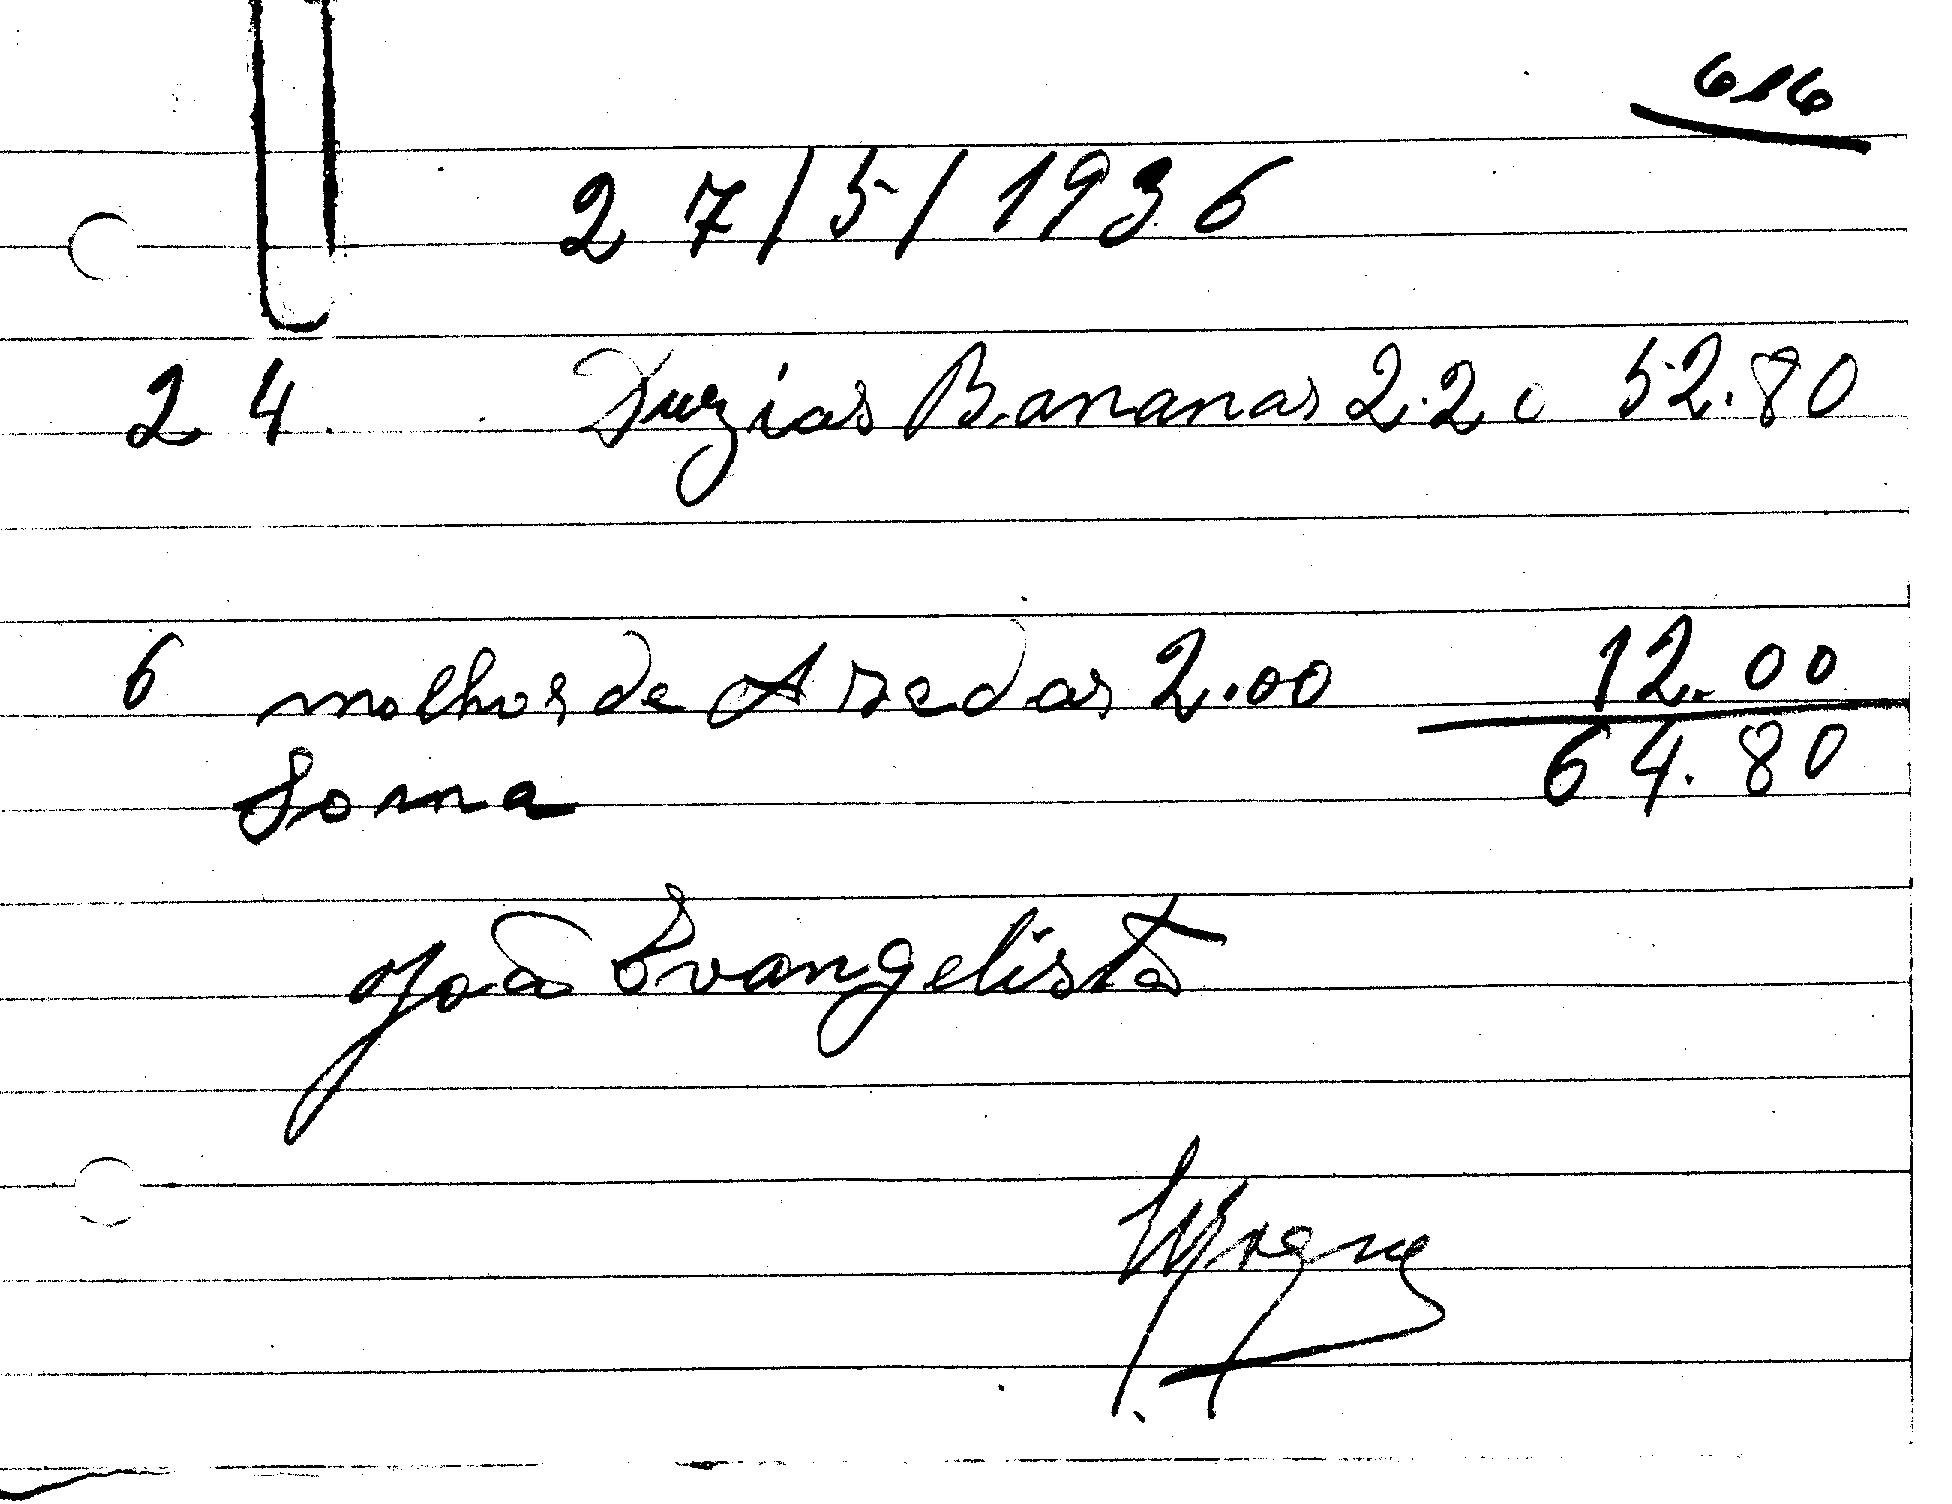 616
27/5/1936
24. Duzias Bananas 2.20 52.80
6 molhos de Azedas 2.00 12.00
Soma 64.80
João Evangelista